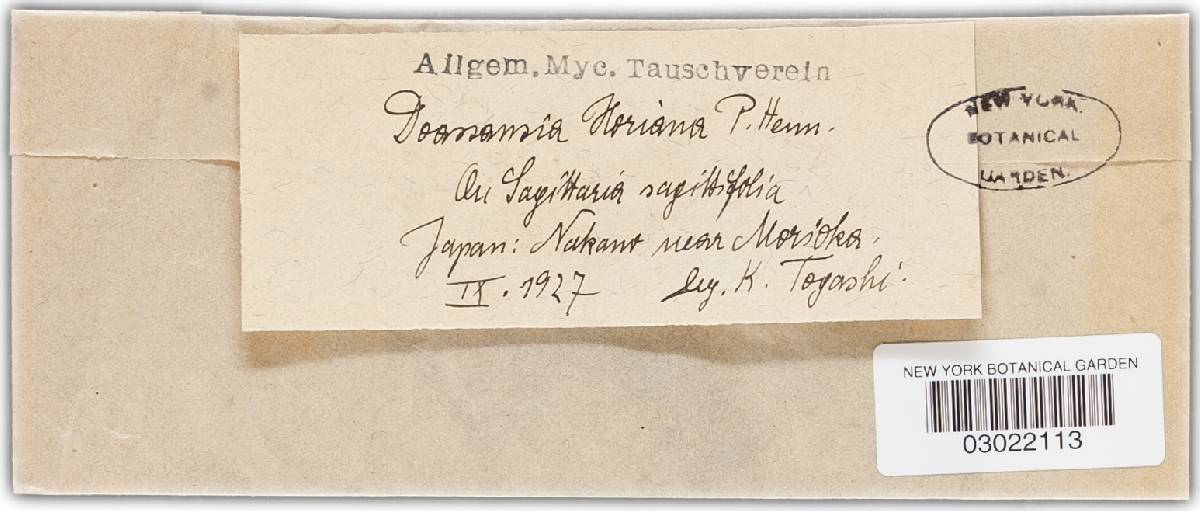 Allgem. Myc. Tauschverein
Doassansia Horiana P. Henn.
On Sagittaria sagittifolia
Japan: Nakano near Morioka.
IX. 1927 leg. K. Togashi.
NEW YORK
BOTANICAL
GARDEN.
NEW YORK BOTANICAL GARDEN
03022113